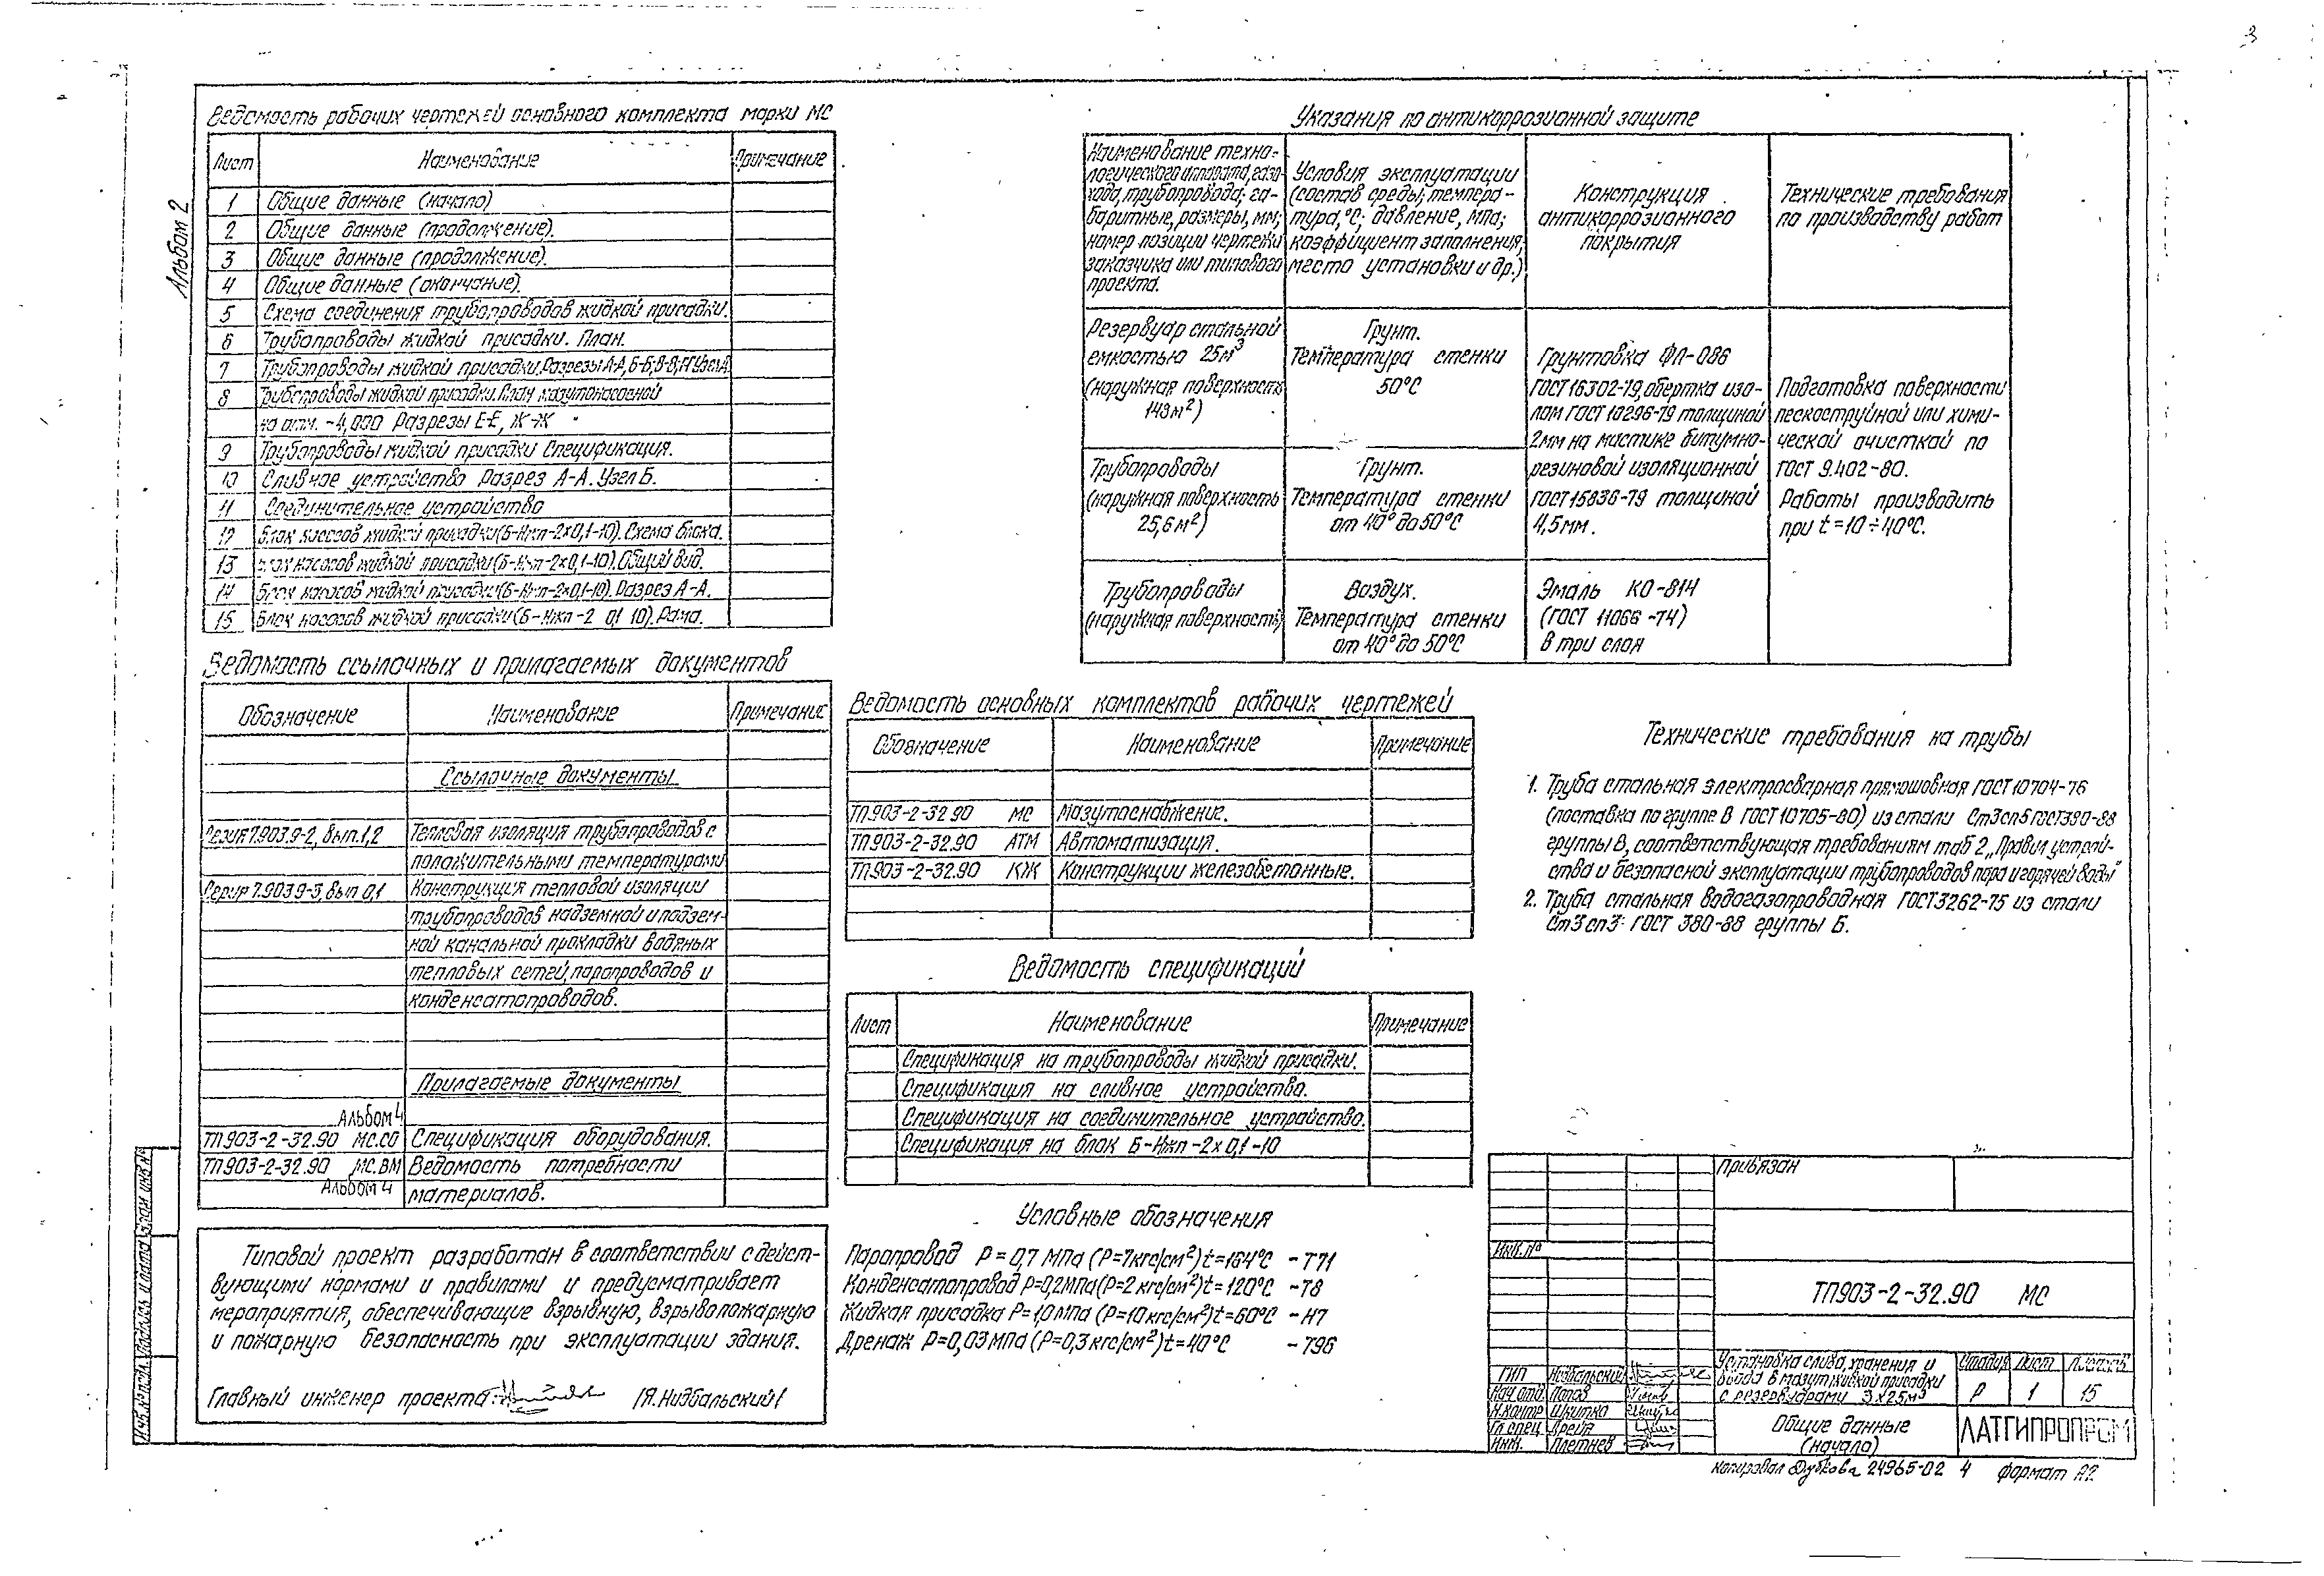 3
Альбом 2
Ведомость рабочих чертежей основного комплекта марки МС
Лист Наименование Примечание
1 Общие данные (начало)
2 Общие данные (продолжение).
3 Общие данные (продолжение).
4 Общие данные (окончание).
5 Схема соединения трубопроводов жидкой присадки.
6 Трубопроводы жидкой присадки. План.
7 Трубопроводы жидкой присадки. Разрезы А-А, Б-Б, В-В,
8 Трубопроводы жидкой присадки План мазутонасосной
на отм. -4,000 Разрезы Е-Е, Ж-Ж
9 Трубопроводы жидкой присадки Спецификация.
10 Сливное устройство Разрез А-А. Узел Б.
11 Соединительное устройство
12 Блок насосов жидкой присадки (Б-Нжп-2х0,1-10). Схема блока.
13 Блок насосов жидкой присадки (Б-Нжп-2х0,1-10). Общий вид.
14 Блок насосов жидкой присадки (Б-Нжп-2х0,1-10). Разрез А-А.
15 Блок насосов жидкой присадки (Б-Нжп-2 0,1 10). Рама.
Ведомость ссылочных и прилагаемых документов
Обозначение Наименование Примечание
Ссылочные документы
Серия 7.903.9-2, вып.1,2 Тепловая изоляция трубопроводов с
положительными температурами
Серия 7.903.9-3, вып 0,1 Конструкция тепловой изоляции
трубопроводов надземной и подзем-
ной канальной прокладки водяных
тепловых сетей, паропроводов и
конденсатопроводов.
Прилагаемые документы
Альбом 4
ТП903-2-32.90 МС.СО Спецификация оборудования.
ТП903-2-32.90 МС.ВМ Ведомость потребности
Альбом 4 материалов.
Типовой проект разработан в соответствии с дейст-
вующими нормами и правилами и предусматривает
мероприятия, обеспечивающие взрывную, взрывопожарную
и пожарную безопасность при эксплуатации здания.
Главный инженер проекта: /Я.Нидбальский/
Ведомость основных комплектов рабочих чертежей
Обозначение Наименование Примечание
ТП903-2-32.90 МС Мазутоснабжение.
ТП903-2-32.90 АТМ Автоматизация.
ТП903-2-32.90 КЖ Конструкции железобетонные.
Ведомость спецификаций
Лист Наименование Примечание
Спецификация на трубопроводы жидкой присадки.
Спецификация на сливное устройство.
Спецификация на соединительное устройство.
Спецификация на блок Б-Нжп-2х0,1-10
Условные обозначения
Паропровод Р=0,7 МПа (Р=7кгс/см²) t=164°С - Т71
Конденсатопровод Р=0,2МПа (Р=2 кгс/см²) t=120°С - Т8
Жидкая присадка Р=1,0 МПа (Р=10 кгс/см²) t=60°С - Н7
Дренаж Р=0,03 МПа (Р=0,3 кгс/см²) t=40°С - Т96
Указания по антикоррозионной защите
Наименование техно-
логического аппарата, газо-
хода, трубопровода; га-
баритные, размеры, мм;
номер позиции чертежи
заказчика или типового
проекта.
Условия эксплуатации
(состав среды; темпера-
тура, °С; давление, МПа;
коэффициент заполнения,
место установки и др.)
Конструкция
антикоррозионного
покрытия
Технические требования
по производству работ
Резервуар стальной
емкостью 25м³
(наружная поверхность
143м²)
Грунт.
Температура стенки
50°С
Трубопроводы
(наружная поверхность
25,6м²)
Грунт.
Температура стенки
от 40° до 50°С
Грунтовка ФЛ-086
ГОСТ 16302-79, обертка изо-
лом ГОСТ 10296-79 толщиной
2мм на мастике битумно-
резиновой изоляционной
ГОСТ 15836-79 толщиной
4,5мм.
Подготовка поверхности
пескоструйной или хими-
ческой очисткой по
ГОСТ 9.402-80.
Работы производить
при t=10÷40°С.
Трубопроводы
(наружная поверхность)
Воздух.
Температура стенки
от 40° до 50°С
Эмаль КО-814
(ГОСТ 11066-74)
в три слоя
Технические требования на трубы
1. Труба стальная электросварная прямошовная ГОСТ 10704-76
(поставка по группе В ГОСТ 10705-80) из стали Ст3сп5 ГОСТ380-88
группы В, соответствующая требованиям таб 2 „Правил устрой-
ства и безопасной эксплуатации трубопроводов пара и горячей воды"
2. Труба стальная водогазопроводная ГОСТ3262-75 из стали
Ст3сп3 ГОСТ 380-88 группы Б.
Привязан
Инв.№
ТП903-2-32.90 МС
ГИП Нидбальский
Нач.отд. Попов
Н.контр Шкитко
Гл.спец
Инж. Плетнев
Установка слива, хранения и
ввода в мазут жидкой присадки
с резервуарами 3х25м³
Стадия Лист Листов
Р 1 15
Общие данные
(начало)
ЛАТГИПРОПРОМ
Инв.№подл. Подпись и дата Взам инв№
Копировал Дубкова 24965-02 4 формат А2